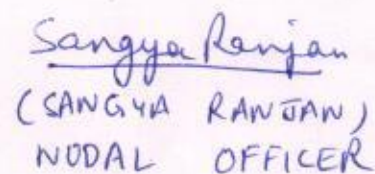 Sangya Ranjan
(SANGYA RANJAN)
NODAL OFFICER